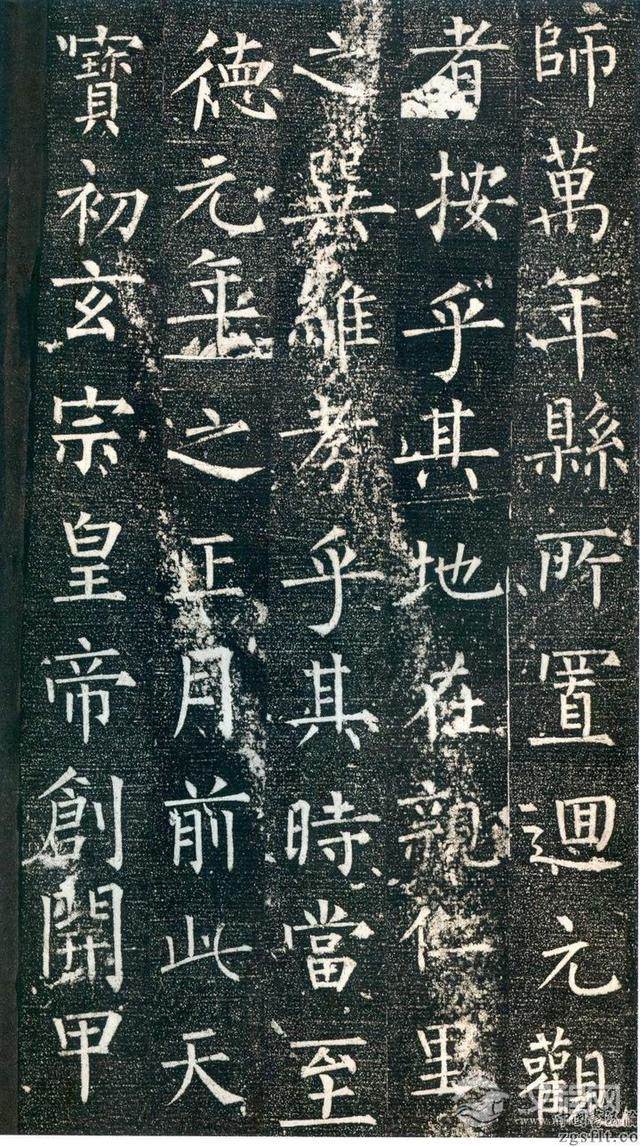 師萬年縣所置迴元觀
者按乎其地在親仁里
之巽維考乎其時當至
德元年之正月前此天
寶初玄宗皇帝創開甲